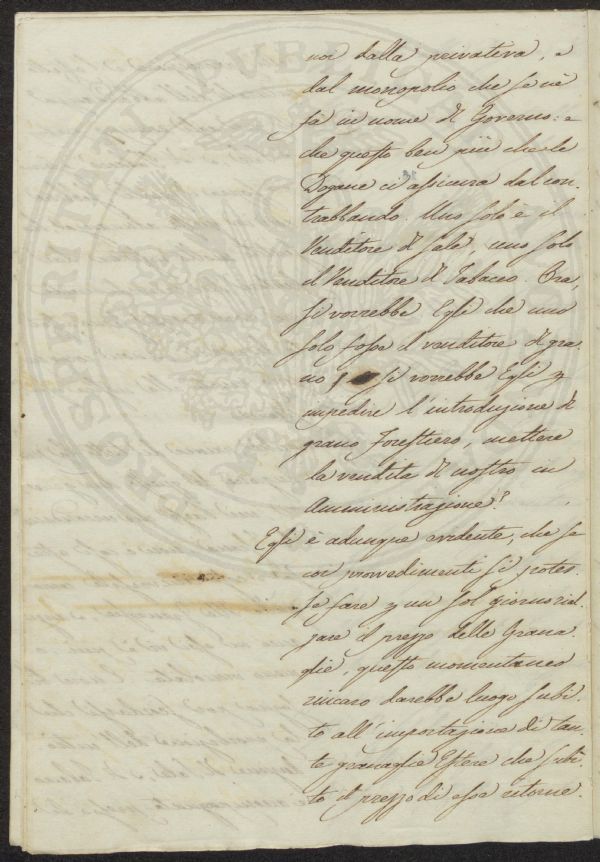 noi dalla privativa, e
dal monopolio che se n'è
fà in nome di Governo: e
che questo ben più che le
Dogane ci assicura dal con-
trabbando. Uno solo è il
Venditore di Sale, uno solo
il Venditore di Tabacco. Ora,
si vorrebbe Egli che uno
solo fosse il venditore di gra-
no, si vorrebbe Egli p
impedire l'introduzione di
grano Forestiero, mettere
la vendita di nostro in
Amministrazione?
Egli è adunque evidente, che se
coi provvedimenti si potes-
se fare p un sol giorno rial-
zare il prezzo delle Grana-
glie, questo momentaneo
rincaro darebbe luogo subi-
to all'importazione di tan-
te granaglie Estere che subi-
to il prezzo di esse ritorne-
PROSPERITATI PUBLICAE